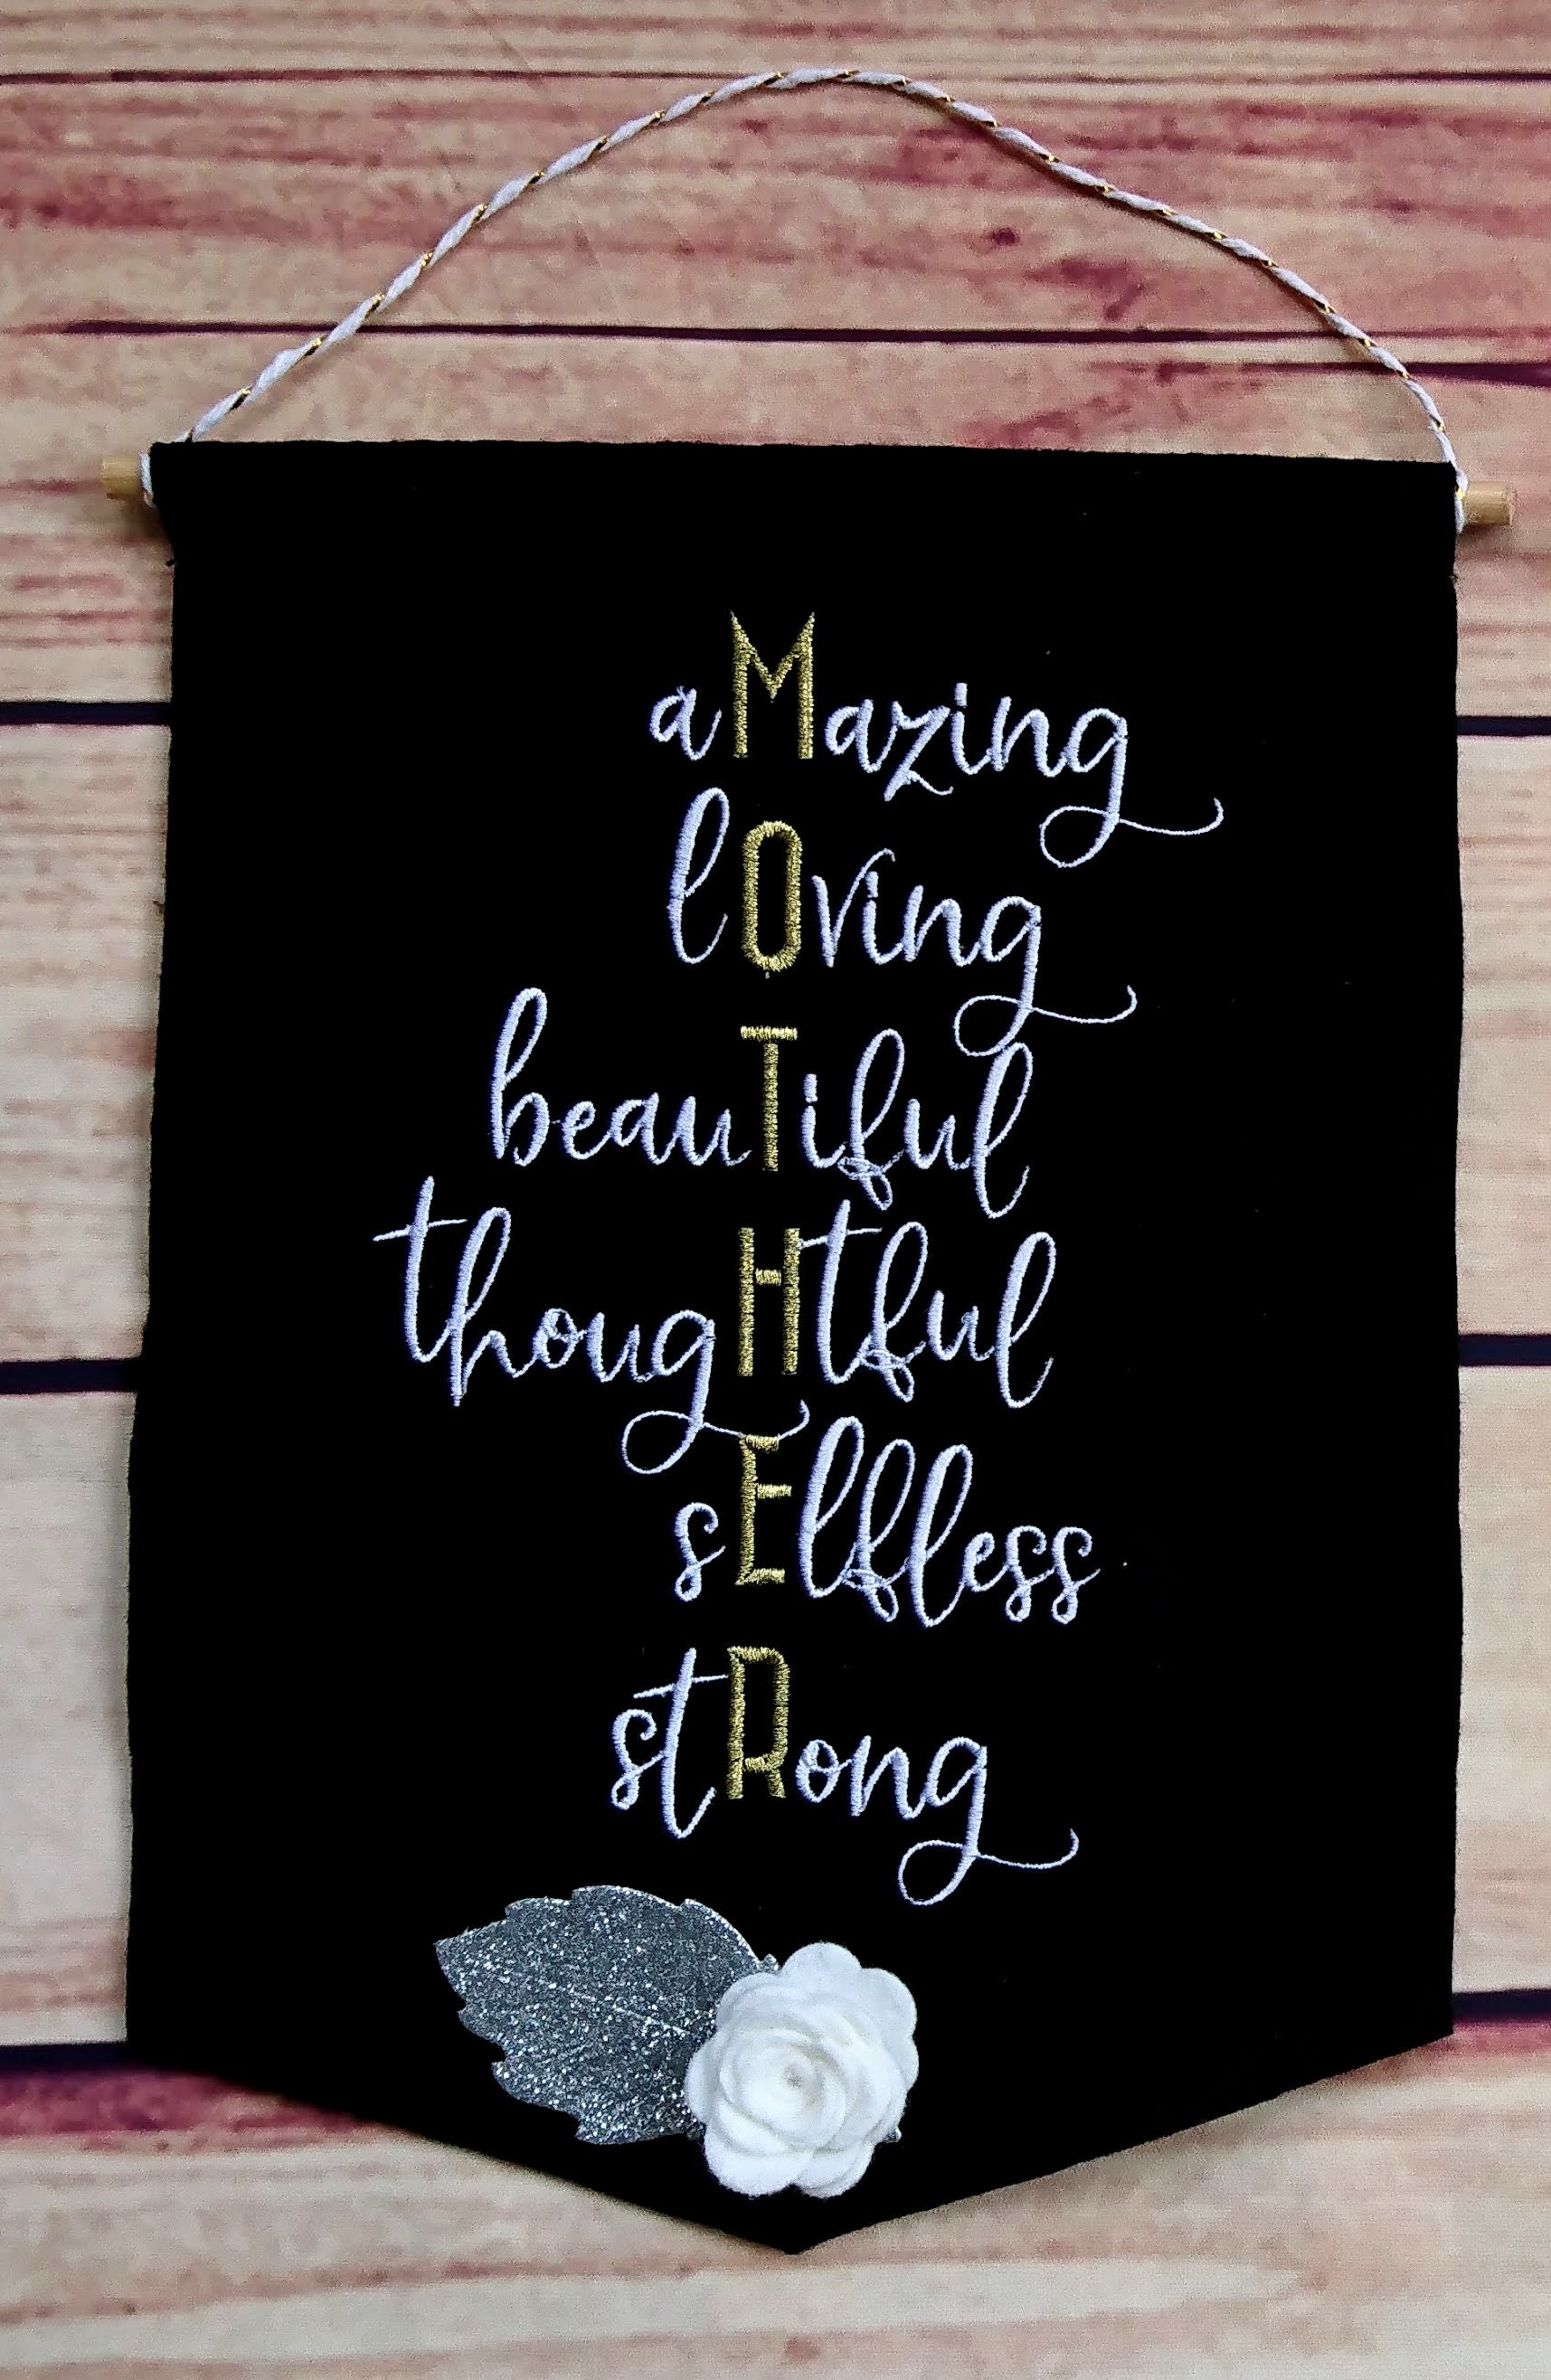 aMazing
lOving
beauTiful
thougHtful
sElfless
stRong